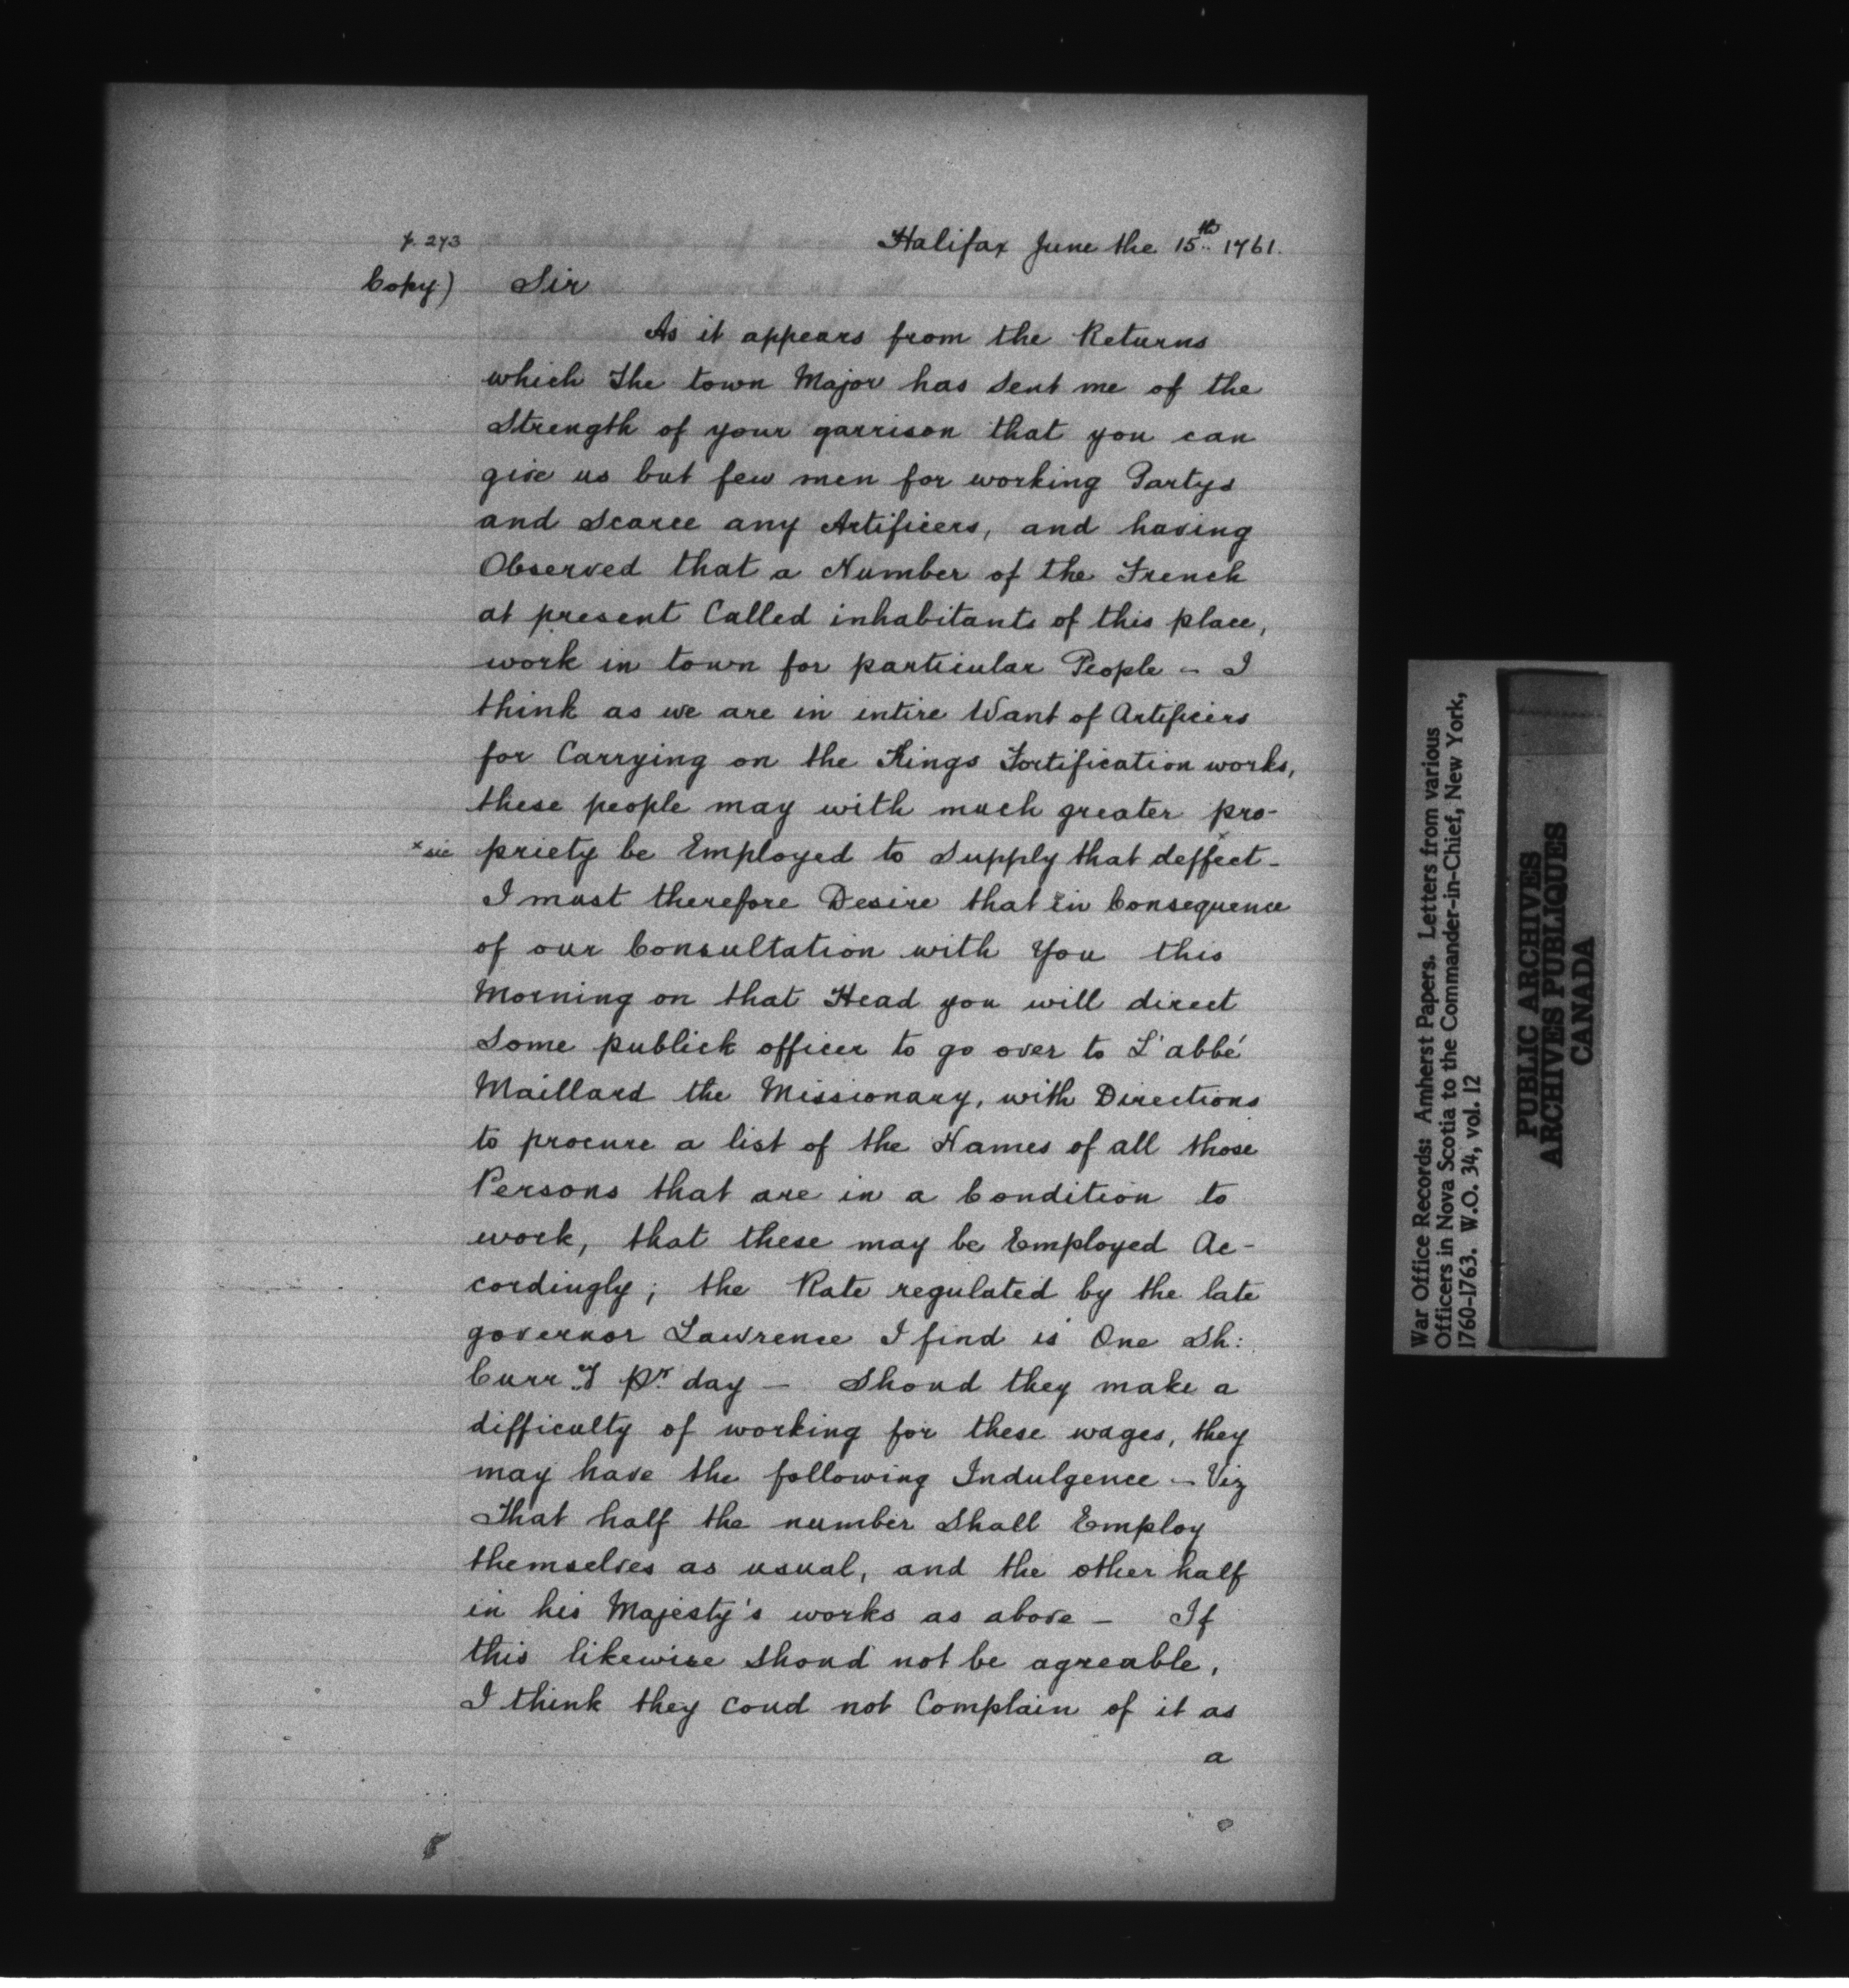 p. 273
Halifax June the 15th. 1761.
Copy)
Sir
As it appears from the Returns
which The town Major has Sent me of the
Strength of your garrison that you can
give us but few men for working Partys
and Scarce any Artificers, and having
Observed that a Number of the French
at present Called inhabitants of this place,
work in town for particular People - I
think as we are in intire Want of Artificers
for Carrying on the Kings Fortification works,
these people may with much greater pro-
x sic priety be Employed to Supply that deffect x -
I must therefore Desire that in Consequence
of our Consultation with You this
Morning on that Head you will direct
Some publick officer to go over to L'abbé
Maillard the Missionary, with Directions
to procure a list of the Names of all those
Persons that are in a Condition to
work, that these may be Employed Ac-
cordingly; the Rate regulated by the late
governor Lawrence I find is One Sh:
Curr.y pr. day - Shoud they make a
difficulty of working for these wages, they
may have the following Indulgence - Viz
That half the number Shall Employ
themselves as usual, and the other half
in his Majesty's works as above - If
this likewise Shoud not be agreable,
I think they coud not Complain of it as
a
War Office Records: Amherst Papers. Letters from various
Officers in Nova Scotia to the Commander-in-Chief, New York,
1760-1763. W.O. 34, vol. 12
PUBLIC ARCHIVES
ARCHIVES PUBLIQUES
CANADA